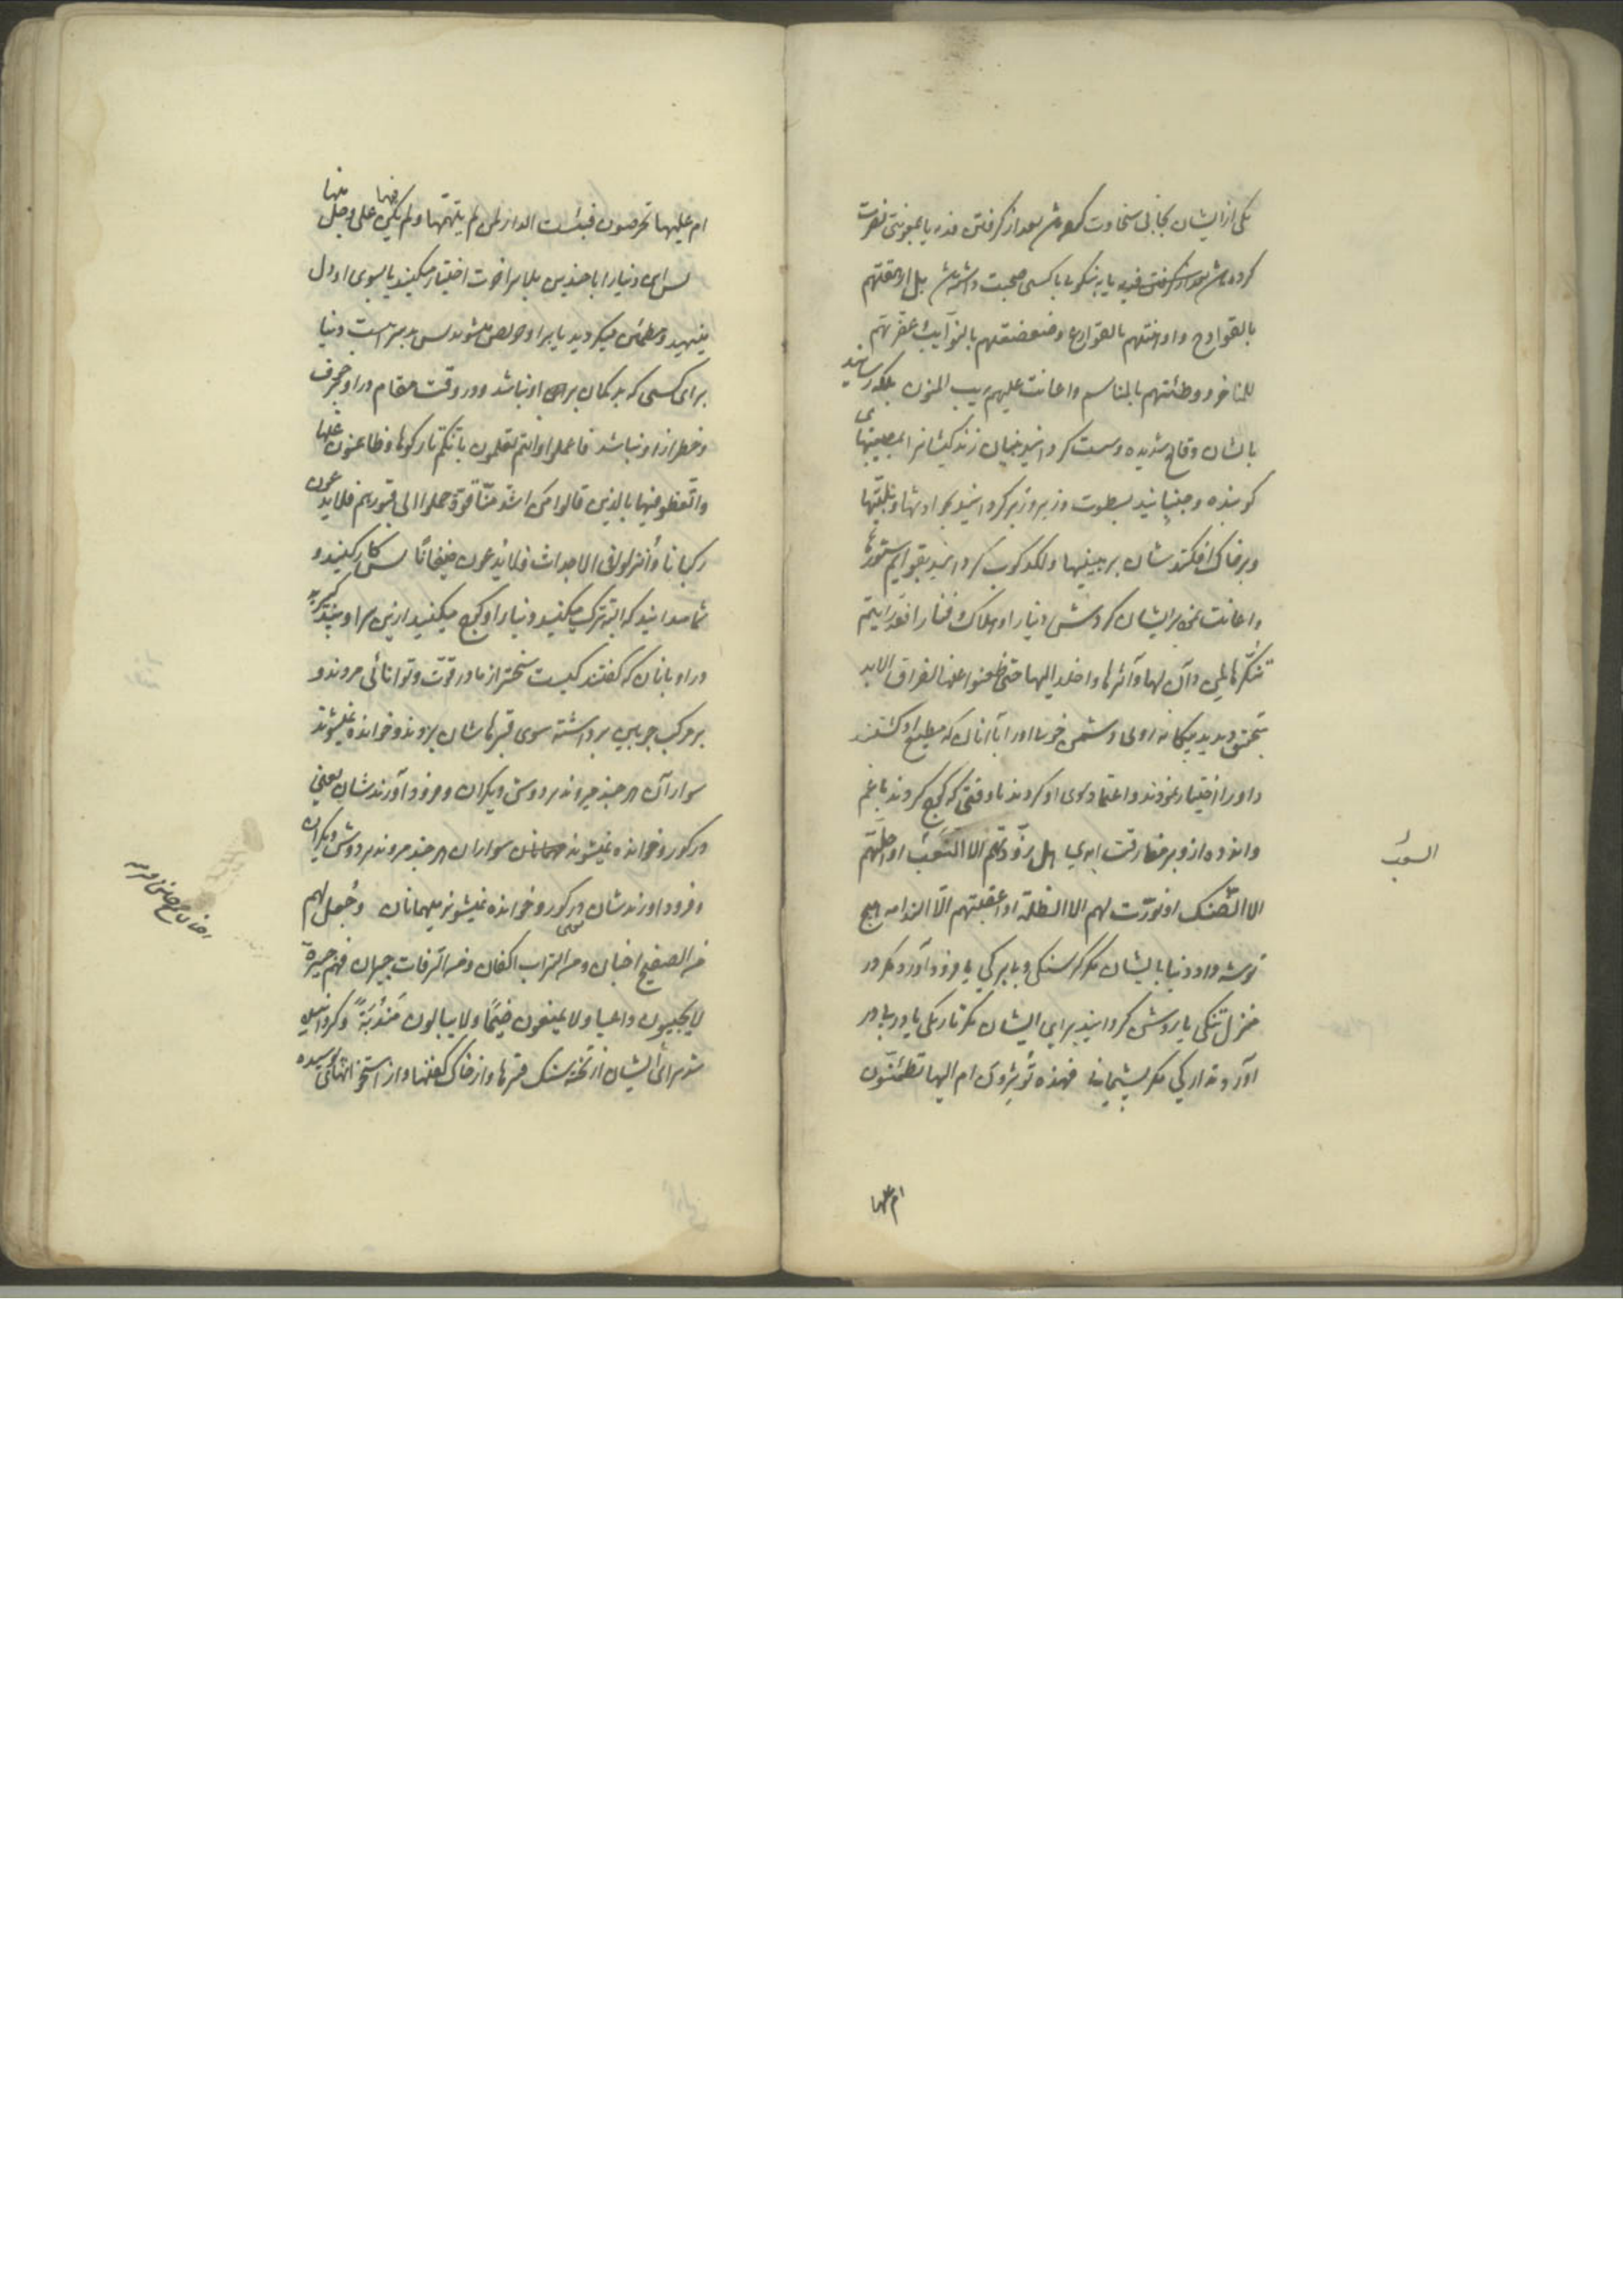 یکی از ایشان بجانی سخاوت کرده‌ش بعد از گرفتن فدیه یا بمعونتی نصرت
کرده‌ش بعد از گرفتن فدیه یا به نیکویی با کسی صحبت داشته‌ش بل ارهقتهم
بالقوادح و اوهنتهم بالقوارع و ضعضعتهم بالنوآیب و عفّرتهم
للمناخر و وطئتهم بالمناسم و اعانت علیهم ریب المنون بلکه رسانید
بایشان وقایع شدیده و سست گردانید بنیان زندگیشانرا بمصیبتهای
کوبنده و جنبانید بسطوت و زیر و زبر گردانید بحوادثها و بلیّتها
و بر خاک افکندشان بر بینیها و لگدکوب گردانید بقوایم ستورها
و اعانت نمود بر ایشان گردش دنیا را و هلاک و فنا را فقد رایتم
تنکّرها لمن دان لها و آثرها و اخلد الیها حتی ظعنوا عنها لفراق الابد
بتحقیق دیدید بیگانه روئی و دشمنی خو دنیا را با آنان که مطیع او گشتند
و او را اختیار نمودند و اعتماد بسوی او کردند تا وقتی که کوچ کردند با غم
و اندوه از و بر مفارقت ابدی هل زوّدتهم الا السّغب او احلّتهم
الا الضّنک او نوّرت لهم الا الظلمة او اعقبتهم الّا الندامه هیچ
توشه داد دنیا بایشان مگر گرسنگی و بی برگی یا فرود آورد مگر در
منزل تنگی یا روشن گردانید برای ایشان مگر تاریکی یا در پی در
آورد تدارکی مگر پشیمانی فهذه تؤثرون ام الیها تطمئنّون
السغب
ام علیها
ام علیها تحرصون فبئست الدار لمن لم یتّهمها و لم یکن فیها علی وجل منها
پس ای دنیا را با چندین بلا بر اخرت اختیار میکنید یا بسوی او دل
مینهید و مطمئن میگردید یا بر او حریص میشوید پس بد سرائیست دنیا
برای کسی که بد گمان بر او نباشد و در وقت مقام در او خوف
و خطر از او نباشد فاعملوا و انتم تعلمون بانّکم تارکوها و ظاعنون عنها
و اتّعظوا فیها بالذین قالوا من اشدّ منّا قوّة حملوا الی قبورهم فلا یدعون
رکبانا و أنزلوا الاجداث فلا یدعون ضیفانًا پس کار کنید و
شما میدانید که البته ترک میکنید دنیا را و کوچ میکنید ازین سرا و پند گیرید
در او بانان که گفتند کیست سختر از ما در قوّت و توانائی مروند و
بر مرکب چوبین برداشته سوی قبرهاشان بروند و خوانده نمیشوند
سواران هر چند میروند بر دوش دیگران و فرود آورندشان یعنی
در گور و خوانده نمیشوند سواران هر چند مروند بر دوش دیگران
و فرود اورندشان در گور و خوانده نمیشوند میهمانان و جعل لهم
من الصفیح اجنان و من التراب اکفان و من الرّفات جیران فهم جیرة
لا یجیبون داعیا و لا یمنعون ضیمًا و لا یبالون مندبةً و گردانیده
شد برای ایشان از تخته سنگ قبرها و از خاک کفنها و از استخوانهای پوسیده